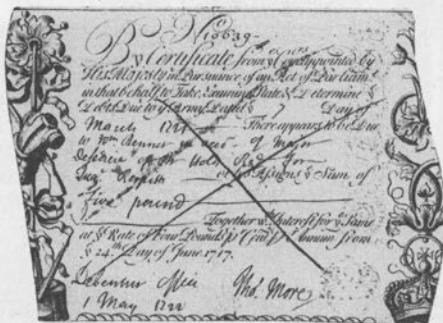 No 10639
By Certificate from ye Comrs appointed by
His Majesty in Pursuance of an Act of Parliam
in that behalf to Take, Examine, State & Determine ye
Debts Due to ye Army Dated ye 7 Day of
March 1721 There appears to be Due
to Wm Benner of Major
of the
or his Assigns ye Sum of
five pound
Together wth Interest for ye Same
at ye Rate of Four Pounds p Cent p Annum from
ye 24th Day of June 1717.
Debenture Office
1 May 1722
Tho. More